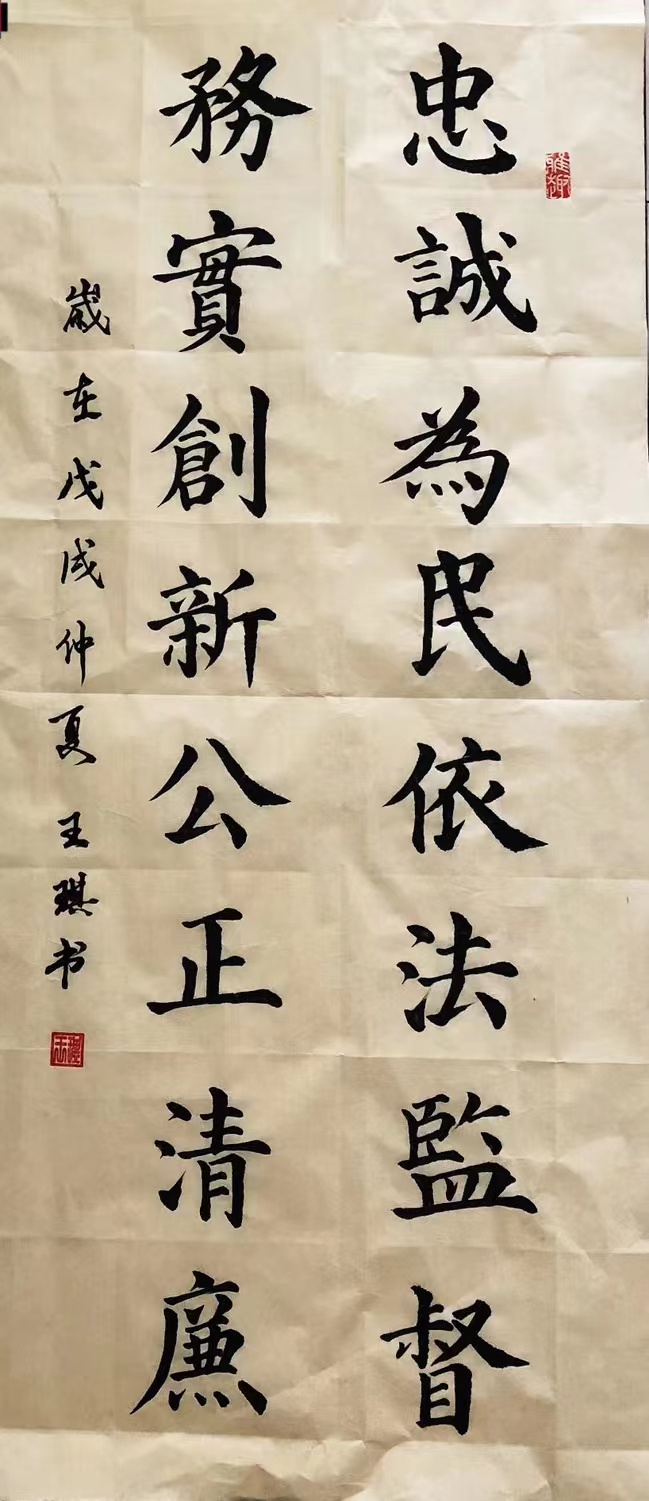 忠誠為民依法監督
務實創新公正清廉
歲在戊戌仲夏王琪书
雅趣